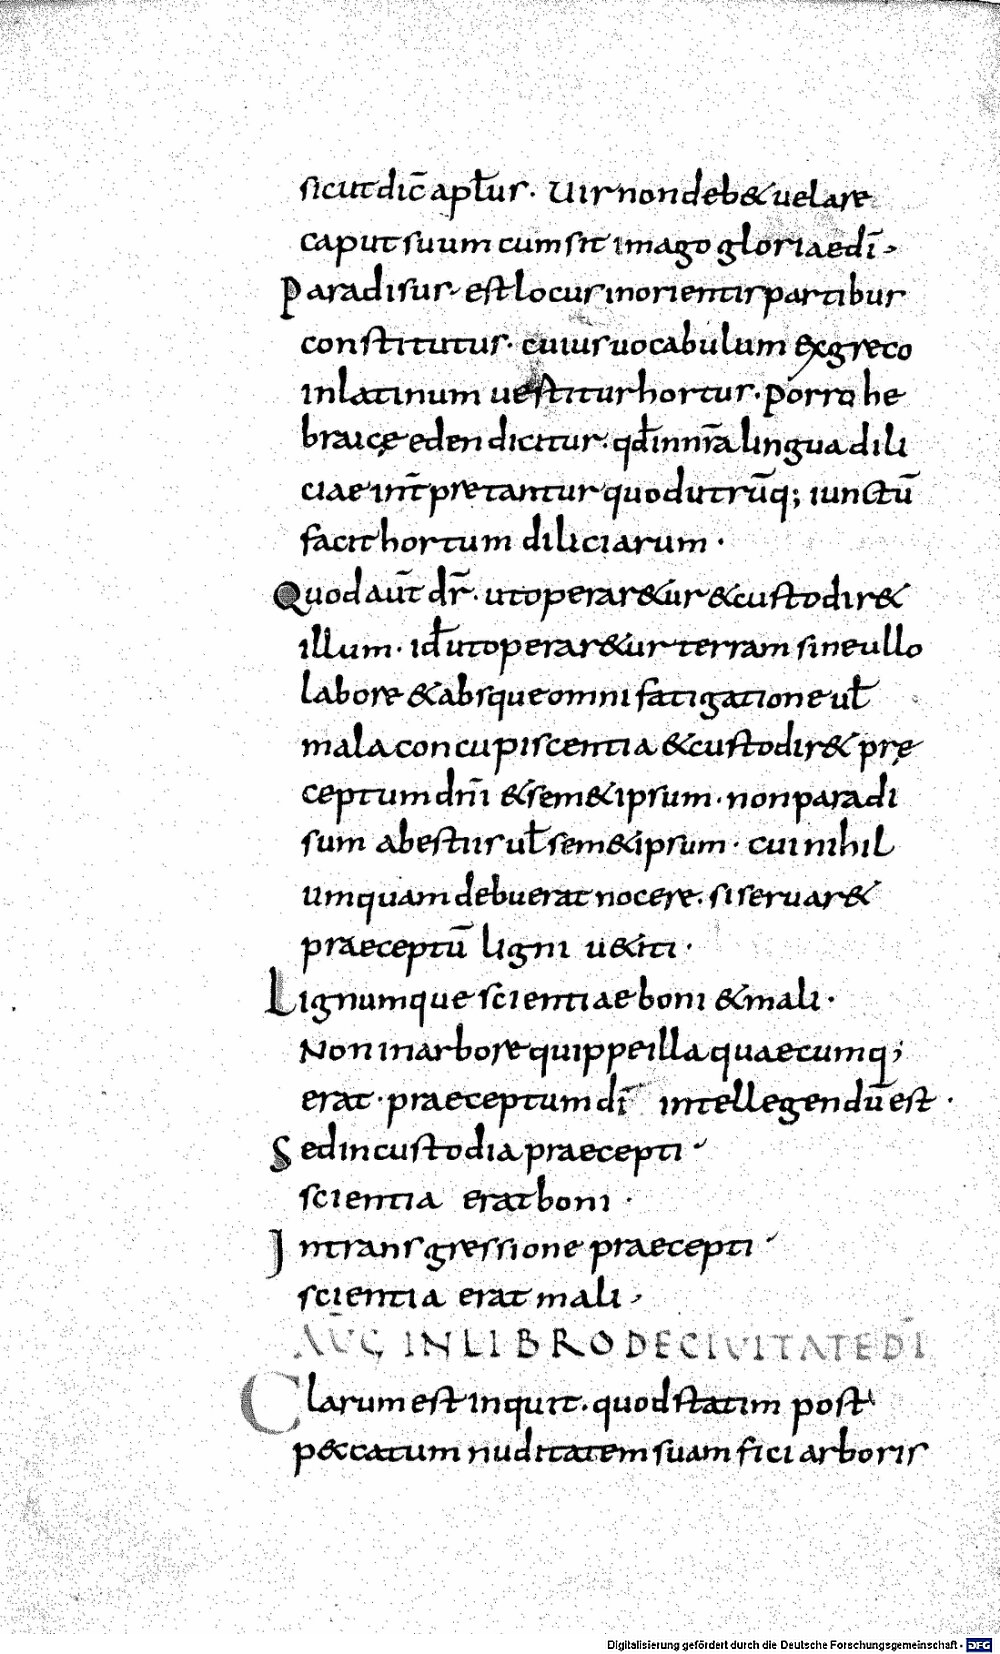 sicut dic̄ apl̄us · Uir non deb& uelare
caput suum cum sit imago gloriae dī ·
Paradisus · est locus in orientis partibus
constitutus · cuius uocabulum ex greco
in latinum uestitur hortus · porro he
braicę eden dicitur · qd̄ in nr̄a lingua dili
ciae int̄pretantur quod utrūq; iunctū
facit hortum diliciarum ·
Quod aūt dr̄ · ut operar&ur & custodir&
illum · id ē ut operar&ur terram sine ullo
labore & absque omni fatigatione ul̄
mala concupiscentia & custodir& prę
ceptum dn̄i & sem&ipsum · non paradi
sum a bestiis ul̄ sem&ipsum · cui nihil
umquam debuerat nocere · si seruar&
praeceptū ligni u&iti ·
Lignumque scientiae boni & mali ·
Non in arbore quippe illa quaecumq;
erat · praeceptum dī intellegendū est ·
Sed in custodia praecepti
scientia erat boni ·
In transgressione praecepti
scientia erat mali ·
AŪG IN LIBRO DE CIVITATE DĪ
Clarum est inquit · quod statim post
p&ccatum nuditatem suam fici arboris
Digitalisierung gefördert durch die Deutsche Forschungsgemeinschaft · DFG